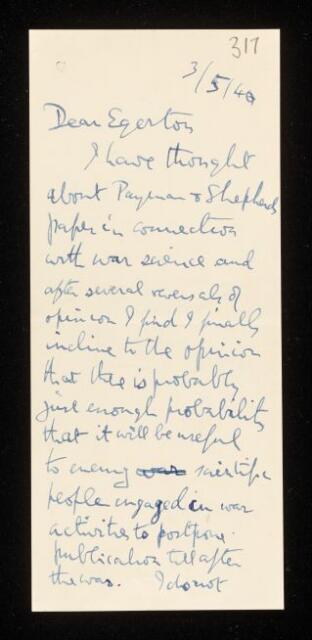 317
3/5/40
Dear Egerton
I have thought
about Payman & Shepherds
paper in connection
with war science and
after several reversals of
opinion I find I finally
incline to the opinion
that there is probably
just enough probability
that it will be useful
to enemy war scientific
people engaged in war
activities to postpone
publication till after
the war. I do not